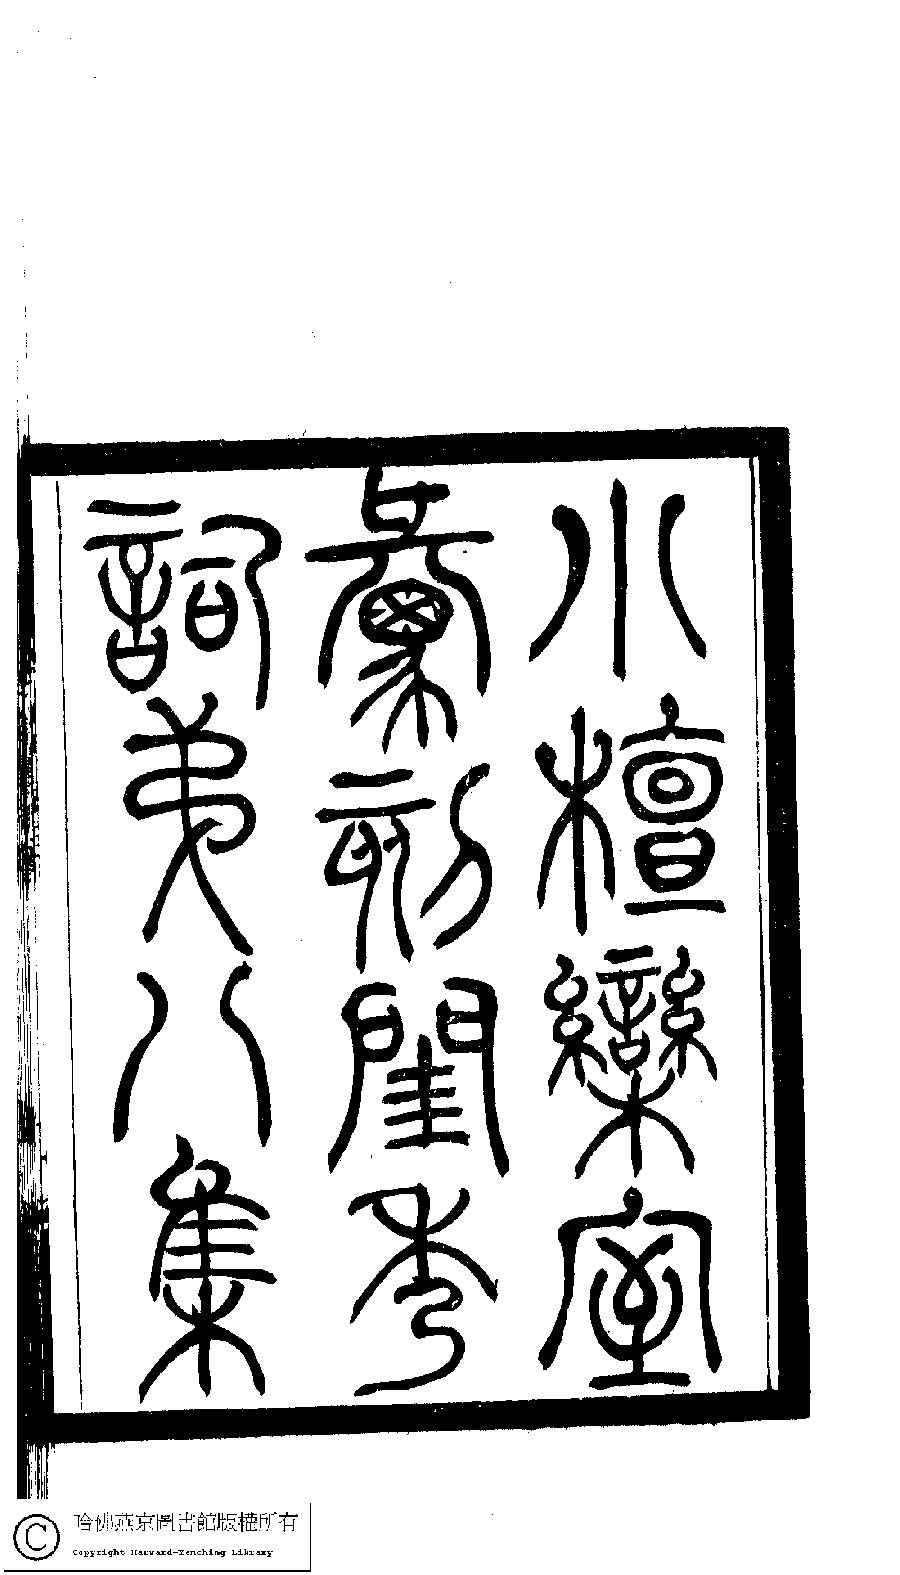 小檀欒室
彙刻閨秀
詞弟八集
哈佛燕京圖書館版權所有
Copyright Harvard-Yenching Library